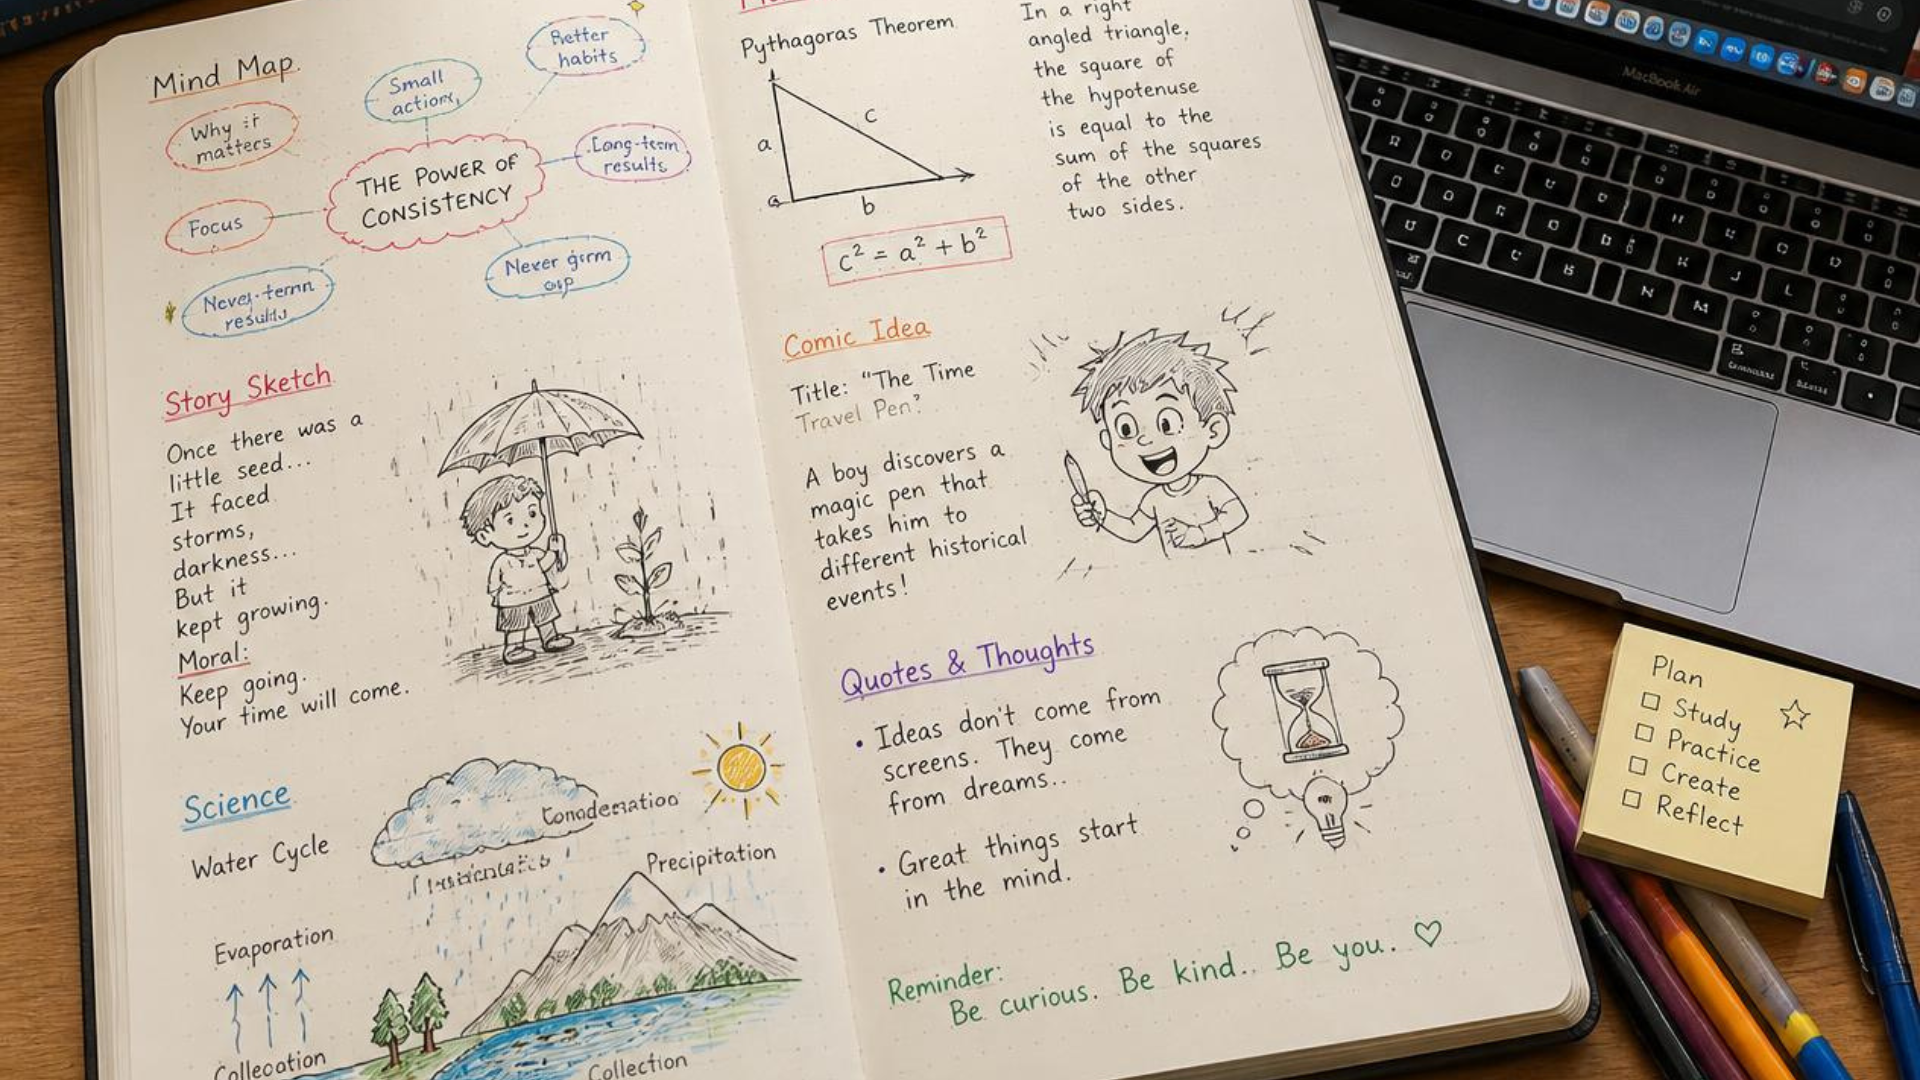 Mind Map
Better
habits
Small
Why it
matters
Long-term
results
THE POWER OF
CONSISTENCY
Focus
Never
Story Sketch
Once there was a
little seed...
It faced
storms,
darkness...
But it
kept growing.
Moral:
Keep going.
Your time will come.
Science
Water Cycle
Precipitation
Evaporation
Collection
Pythagoras Theorem
a
c
b
c² = a² + b²
In a right
angled triangle,
the square of
the hypotenuse
is equal to the
sum of the squares
of the other
two sides.
Comic Idea
Title: "The Time
Travel Pen"
A boy discovers a
magic pen that
takes him to
different historical
events!
Quotes & Thoughts
• Ideas don't come from
screens. They come
from dreams..
• Great things start
in the mind.
Reminder:
Be curious. Be kind.. Be you. ♡
MacBook Air
Plan
☐ Study
☐ Practice
☐ Create
☐ Reflect